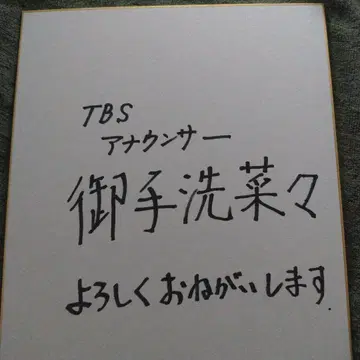 TBS
アナウンサー
御手洗菜々
よろしくおねがいします